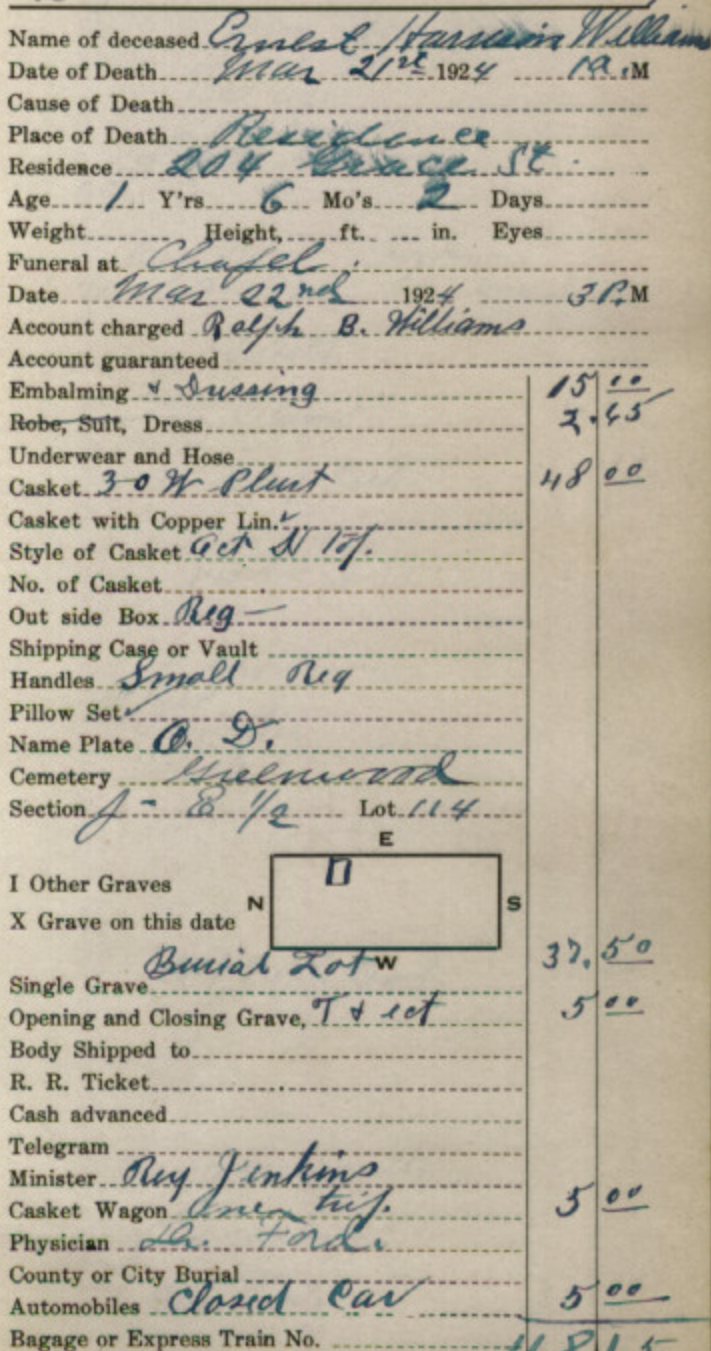 Name of deceased Ernest Harrison Williams
Date of Death Mar 21st 1924 1 a.M
Cause of Death
Place of Death Residence
Residence 204 Grace St.
Age 1 Y'rs 6 Mo's 2 Days
Weight Height, ft. in. Eyes
Funeral at Chapel.
Date Mar 22nd 1924 3 P.M
Account charged Ralph B. Williams
Account guaranteed
Embalming & Dressing 15 00
Robe, Suit, Dress 2.45
Underwear and Hose
Casket 30 W Plush 48 00
Casket with Copper Lin.
Style of Casket Oct
No. of Casket
Out side Box Reg
Shipping Case or Vault
Handles Small Reg
Pillow Set
Name Plate O. D.
Cemetery Greenwood
Section J - E 1/2 Lot 114
E
I Other Graves
N S
X Grave on this date
W
Burial Lot 37.50
Single Grave
Opening and Closing Grave, T & ect 5 00
Body Shipped to
R. R. Ticket
Cash advanced
Telegram
Minister Rev Jenkins
Casket Wagon One trip. 5 00
Physician Dr. Ford.
County or City Burial
Automobiles Closed Car 5 00
Bagage or Express Train No.